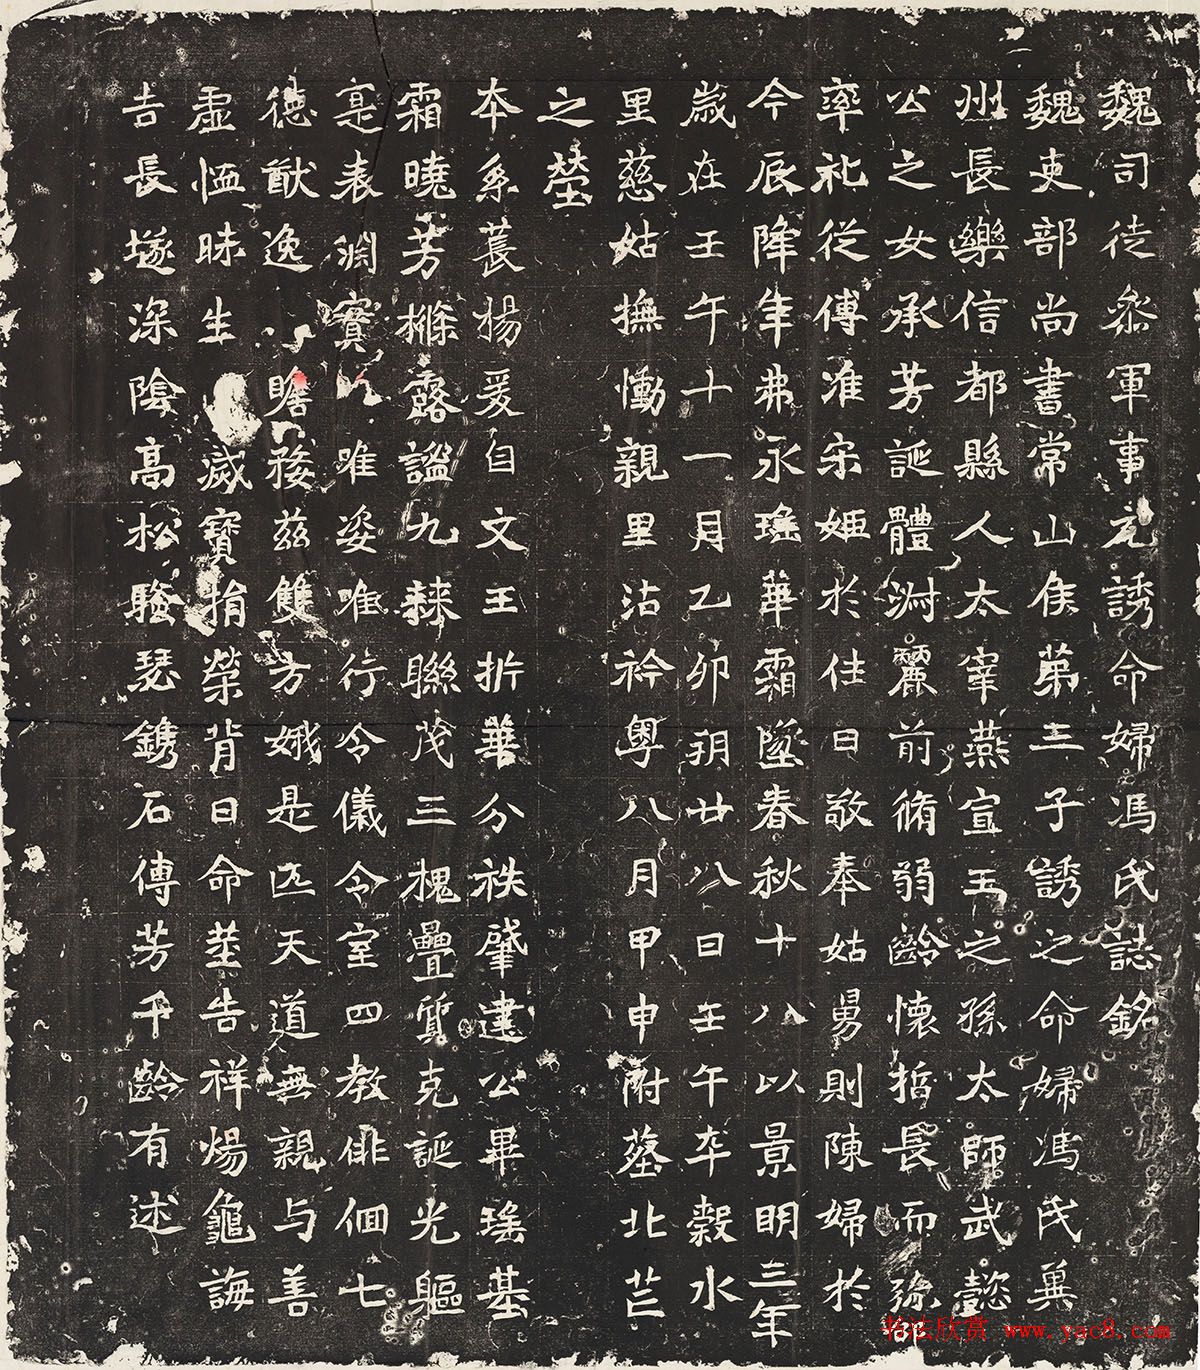 魏司徒叅軍事元誘命婦馮氏誌銘
魏吏部尚書常山侯第三子誘之命婦馮氏兾
州長樂信都縣人太宰燕宣王之孫太師武懿
公之女承芳誕體淑麗前脩弱齡懷哲長而弥
率礼從傅准宋姬於往日敬奉姑舅則陳婦於
今辰降年弗永瑤華霜墜春秋十八以景明三年
歲在壬午十一月乙卯朔廿八日壬午卒穀水
里慈姑撫慟親里沾衿粵八月甲申祔葬北芒
之塋
本系萇楊爰自文王折華分袟肇建公畢瑤基
霜曉芳橼露謐九棘聯茂三槐疊質克誕光軀
寔表渊寳唯姿唯行令儀令室四教俳佪七
德猷逸瞻婺兹雙方娥是匹天道無親与善
虛恤昧生滅寶捐榮背日命莖告祥煬龜誨
吉長埏深陰高松騷瑟鐫石傳芳千齡有述
书法欣赏 www.yac8.com